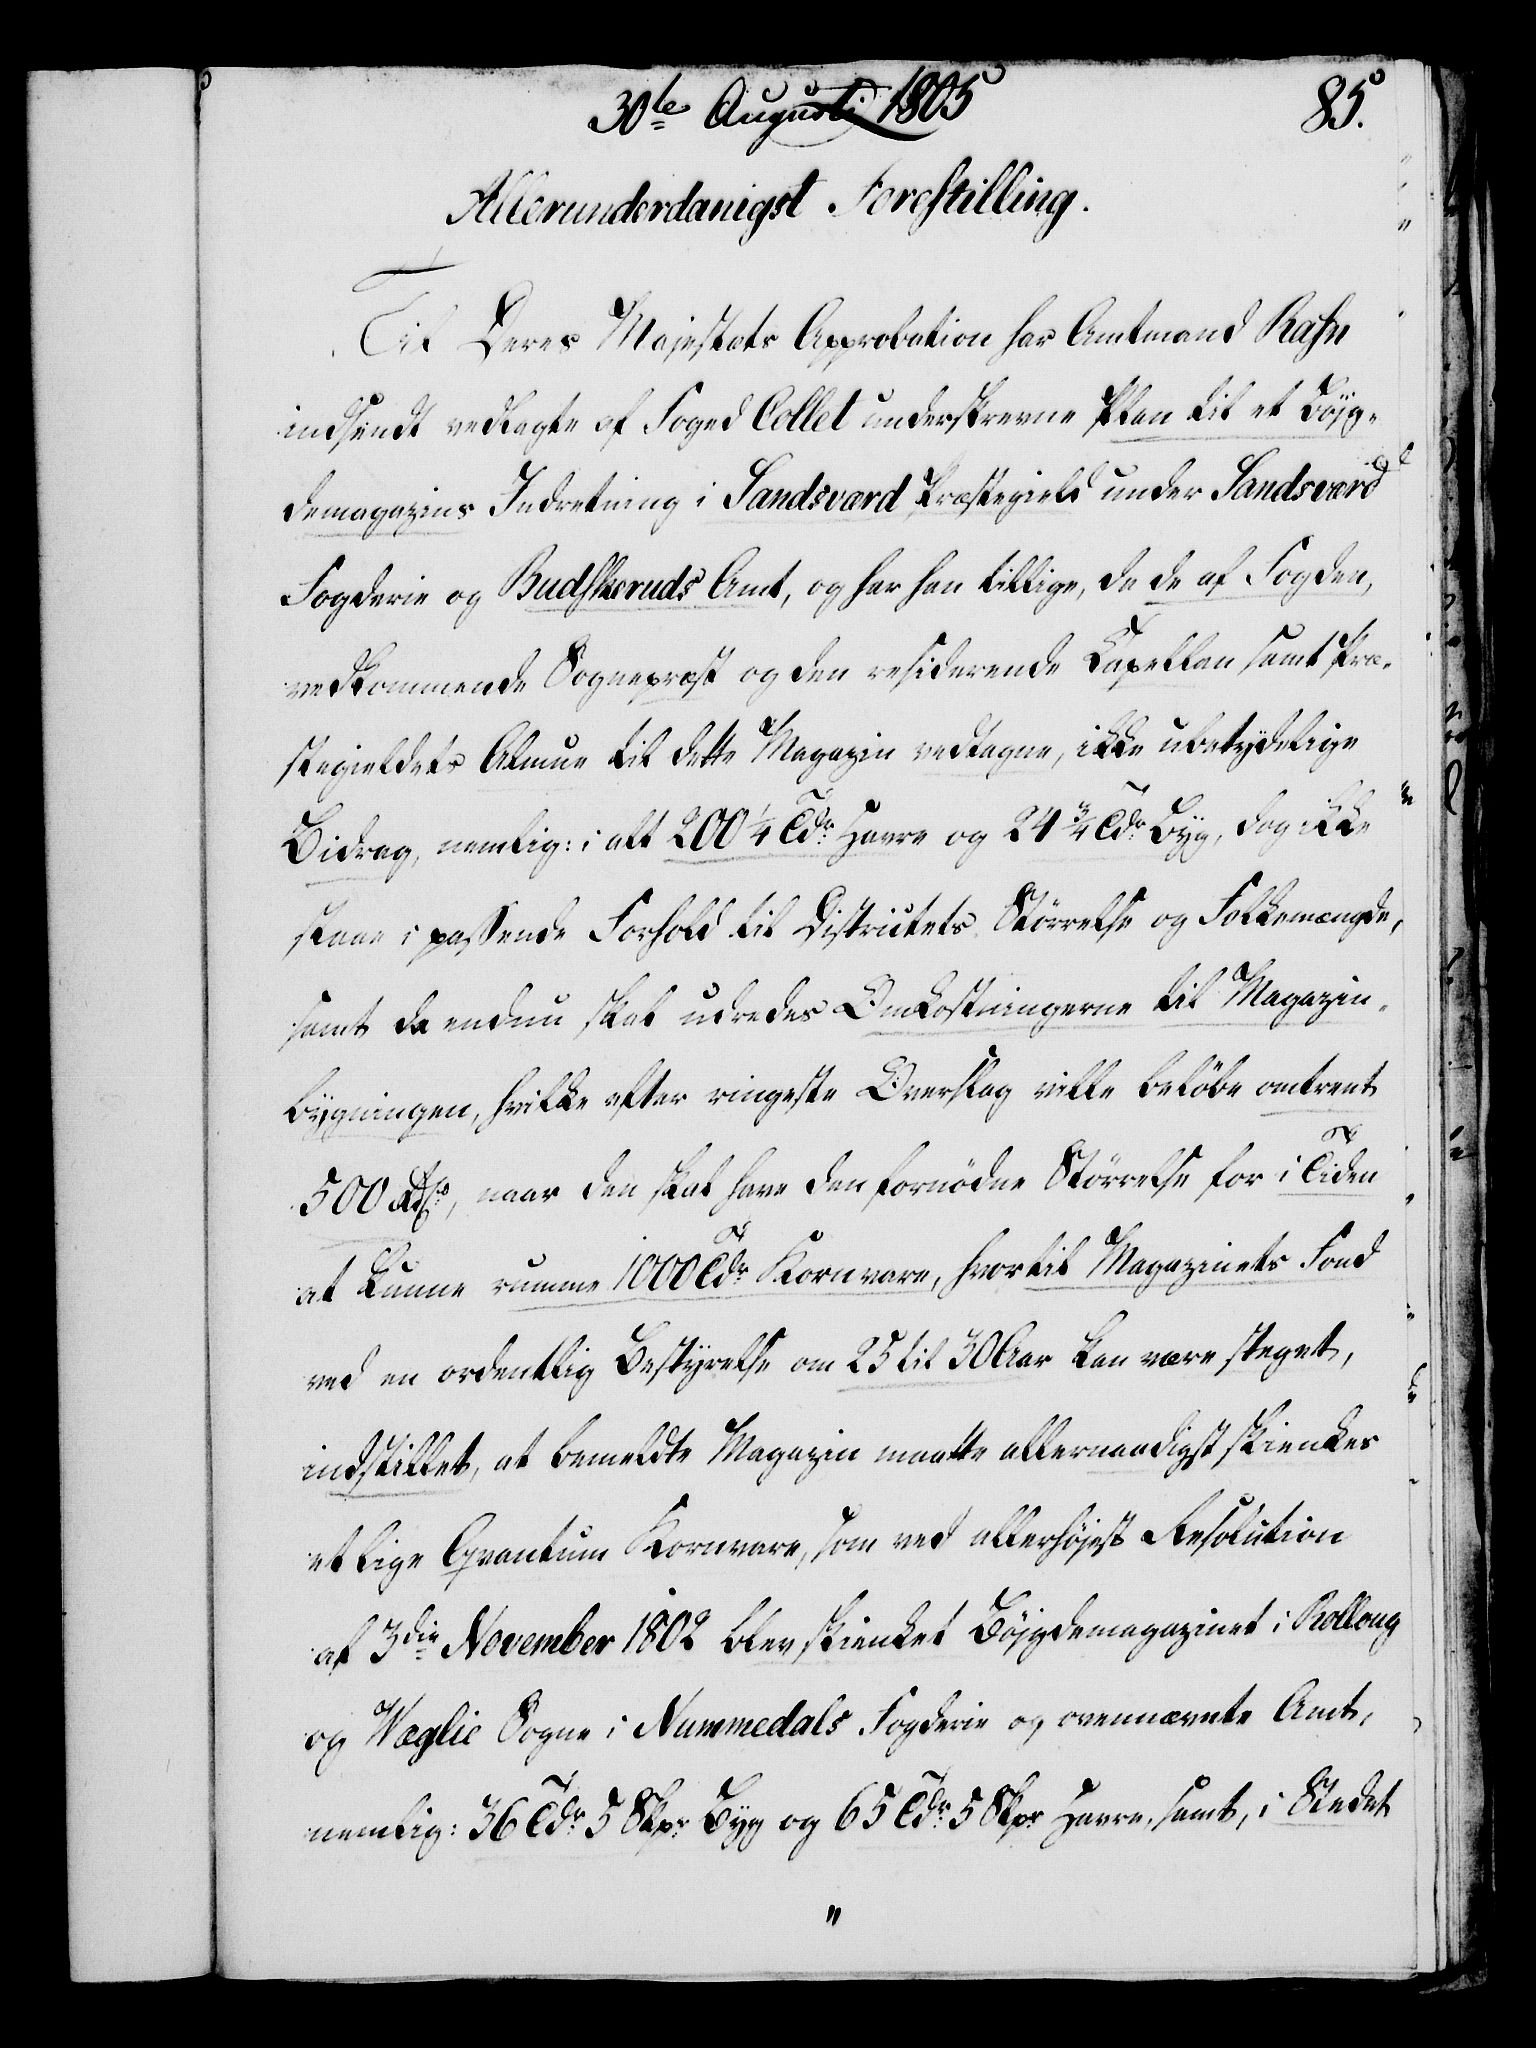 30te Augusti 1805
85.
Allerunderdanigst Forestilling.
Til Deres Majestæts Approbation har Amtmand Rafn
indsendt vedlagte af Foged Collet underskrevne Plan til et Böjg-
demagazins Indretning i Sandsværd Præstegield under Sandsværd
Fogderie og Budskeruds Amt, og har han tillige, da de af Fogden,
vedkommende Sognepræst og den residerende Capellan samt Præ-
stegieldets Almue til dette Magazin vedtagne, ikke ubetydelige
Bidrag, nemlig: i alt 200 1/4 Tdr Havre og 24 3/4 Tdr Byg, dog ikke
staae i passende Forhold til Districtets Störrelse og Folkemængde,
samt da endnu skal udredes Omkostningerne til Magazin-
bygningen, hvilke efter ringeste Overslag ville belöbe omtrent
500 Rdlr, naar den skal have den fornödne Störrelse for i Tiden
at kunne rumme 1000 Tdr Kornvare, hvortil Magazinets Fond
ved en ordentlig Bestyrelse om 25 til 30 Aar kan være steget,
indstillet, at bemeldte Magazin maatte allernaadigst skienkes
et lige Qvantum Kornvare, som ved allerhöjest Resolution
af 3die November 1802 blev skienket Böjgdemagazinet i Rolloug
og Wæglie Sogne i Nummedals Fogderie og ovennævnte Amt,
nemlig: 36 Tdr 5 Skpr Byg og 65 Tdr 5 Skpr Havre, samt, i Stedet
"